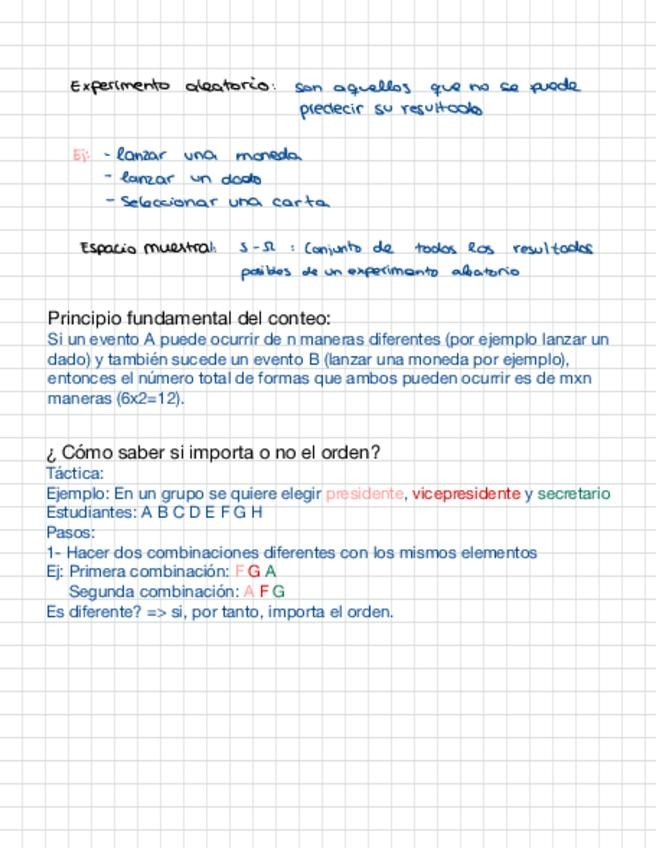 Experimento aleatorio: son aquellos que no se puede
predecir su resultado
Ej: - lanzar una moneda
- lanzar un dado
- Seleccionar una carta
Espacio muestral: S-Ω : Conjunto de todos los resultados
posibles de un experimento aleatorio
Principio fundamental del conteo:
Si un evento A puede ocurrir de n maneras diferentes (por ejemplo lanzar un
dado) y también sucede un evento B (lanzar una moneda por ejemplo),
entonces el número total de formas que ambos pueden ocurrir es de mxn
maneras (6x2=12).
¿ Cómo saber si importa o no el orden?
Táctica:
Ejemplo: En un grupo se quiere elegir presidente, vicepresidente y secretario
Estudiantes: A B C D E F G H
Pasos:
1- Hacer dos combinaciones diferentes con los mismos elementos
Ej: Primera combinación: F G A
Segunda combinación: A F G
Es diferente? => si, por tanto, importa el orden.